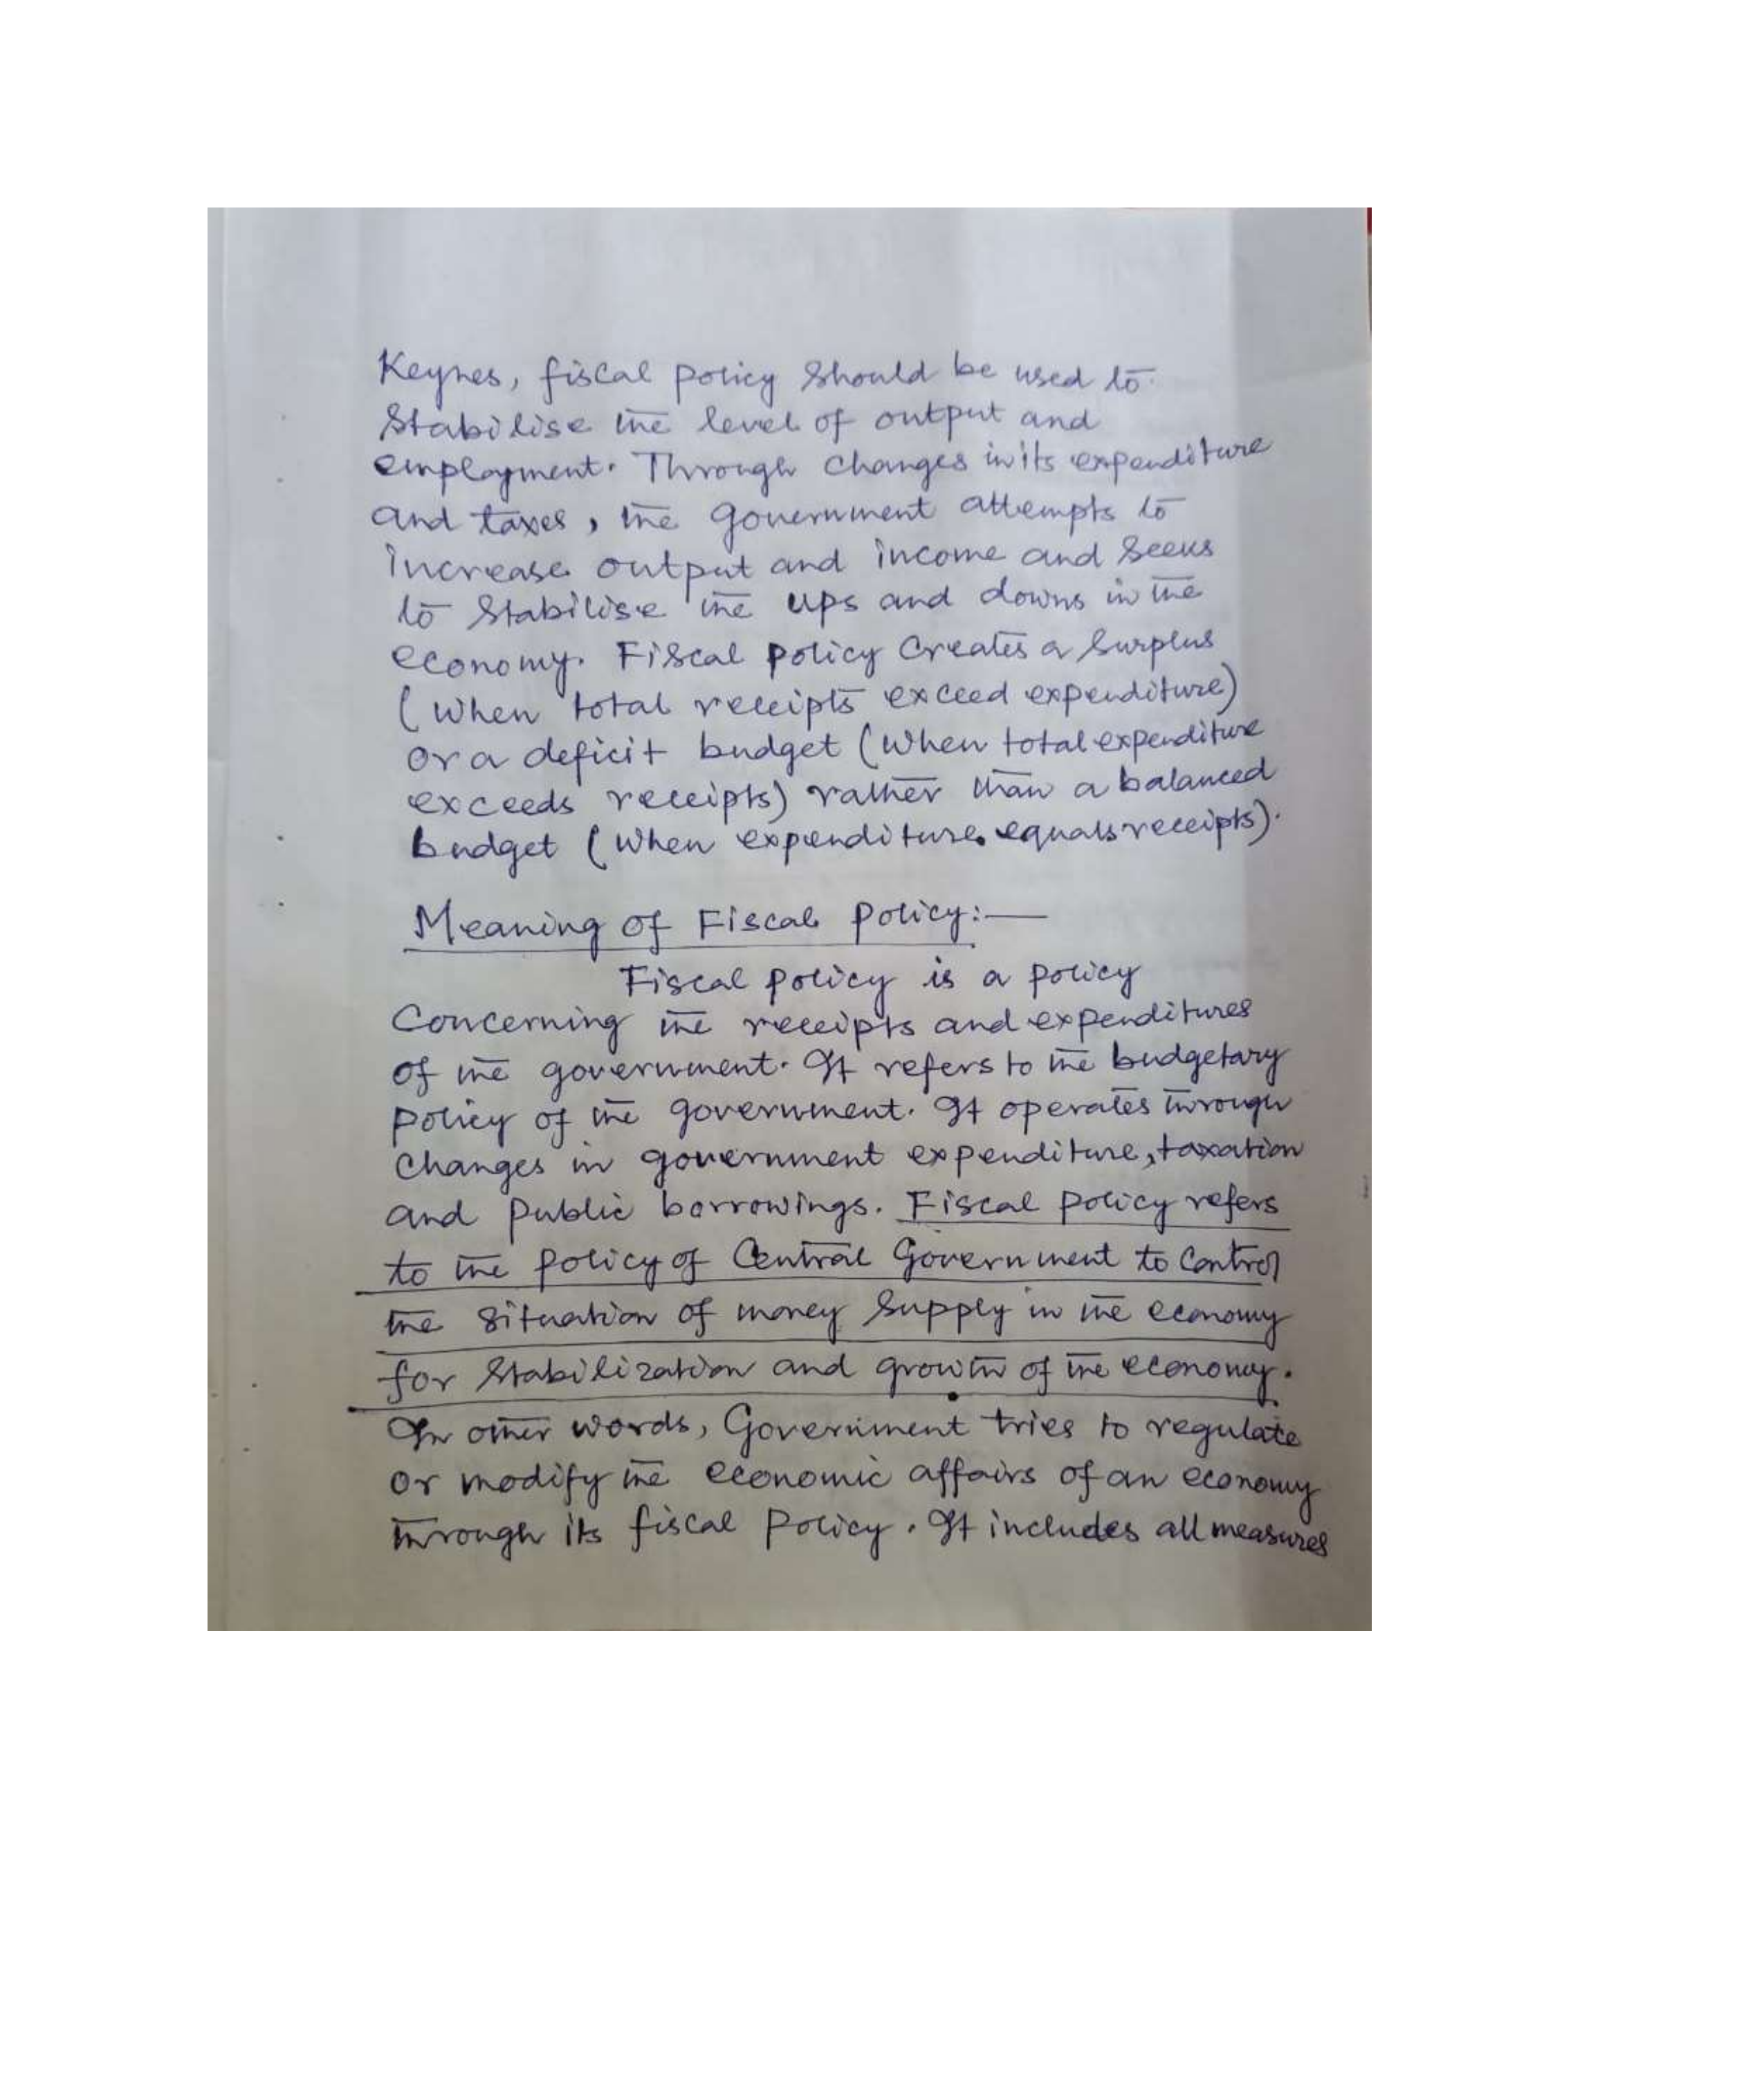 Keynes, fiscal policy should be used to
stabilise the level of output and
employment. Through changes in its expenditure
and taxes, the government attempts to
increase output and income and seeks
to stabilise the ups and downs in the
economy. Fiscal policy creates a surplus
(when total receipts exceed expenditure)
or a deficit budget (when total expenditure
exceeds receipts) rather than a balanced
budget (when expenditure equals receipts).
Meaning of Fiscal policy:—
Fiscal policy is a policy
concerning the receipts and expenditures
of the government. It refers to the budgetary
policy of the government. It operates through
changes in government expenditure, taxation
and public borrowings. Fiscal policy refers
to the policy of Central Government to control
the situation of money supply in the economy
for stabilization and growth of the economy.
In other words, Government tries to regulate
or modify the economic affairs of an economy
through its fiscal policy. It includes all measures